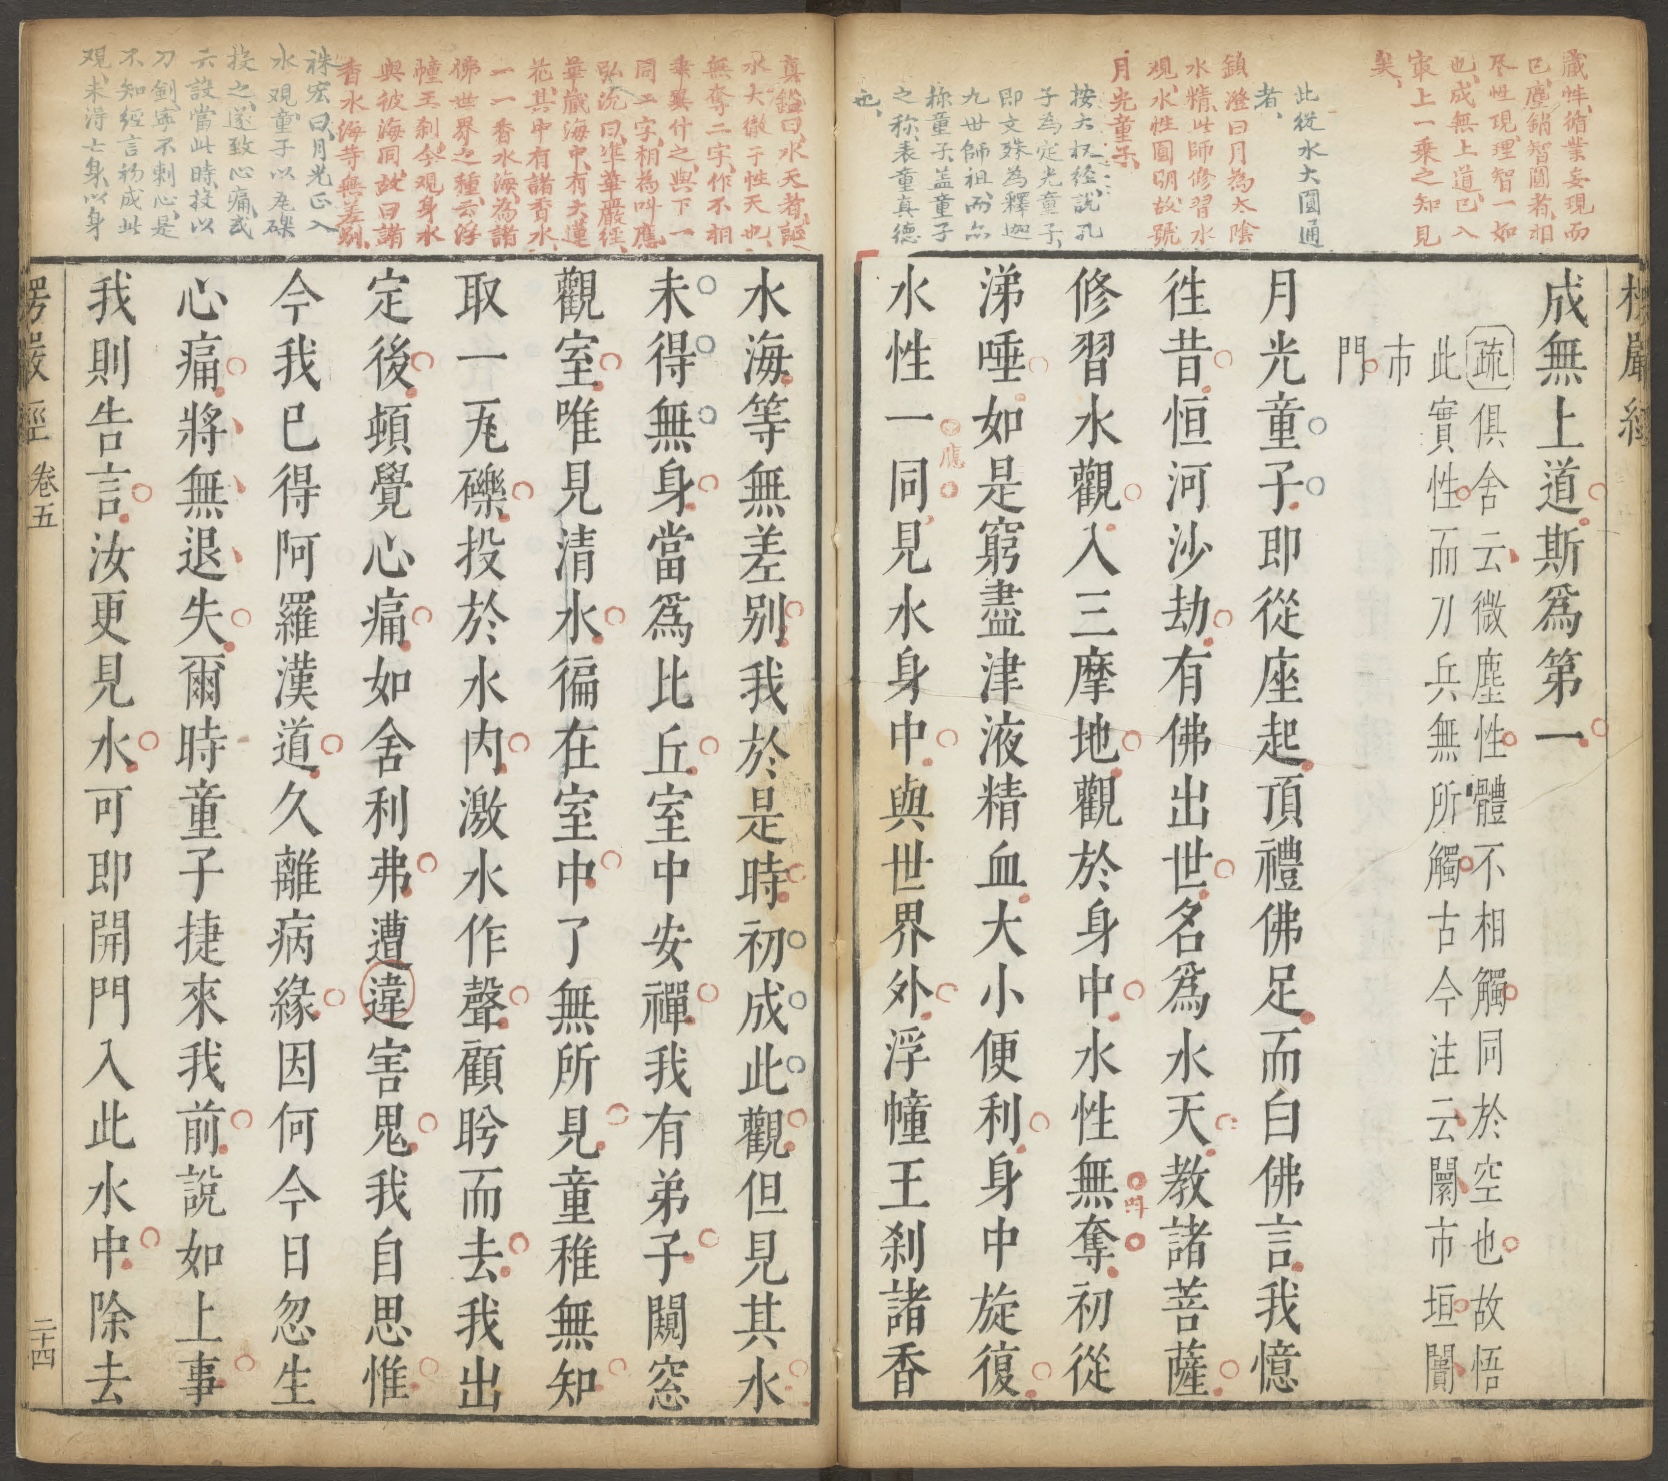 成無上道斯爲第一
疏俱舍云微塵性體不相觸同於空也故悟
此實性而刀兵無所觸古今注云闤市垣闠
市
門
月光童子即從座起頂禮佛足而白佛言我憶
徃昔恒河沙劫有佛出世名爲水天教諸菩薩
修習水觀入三摩地觀於身中水性無奪初從
涕唾如是窮盡津液精血大小便利身中旋復
水性一同見水身中與世界外浮幢王刹諸香
水海等無差别我於是時初成此觀但見其水
未得無身當爲比丘室中安禪我有弟子闚窓
觀室唯見清水徧在室中了無所見童稚無知
取一瓦礫投於水内激水作聲顧盻而去我出
定後頓覺心痛如舍利弗遭違害鬼我自思惟
今我已得阿羅漢道久離病緣因何今日忽生
心痛將無退失爾時童子捷來我前說如上事
我則告言汝更見水可即開門入此水中除去
楞嚴經 卷五
二十四
藏性循業妄現而
已塵銷智圓者相
尽性現理智一如
也成無上道已入
寂上一乗之知見
矣
此從水大圓通
者
鎮澄曰月為太陰
水精此師修習水
观水性圓明故號
月光童子
按大权经說孔
子為定光童子
即文殊為釋迦
九世師祖而亦
称童子盖童子
之称表童真德
也
真鑑曰水天者謳
水大徹于性天也
無奪二字作不相
乗異什之與下一
同二字相為叫應
弘沇曰準華嚴經
華藏海中有大蓮
花其中有諸香水
一一香水海為諸
佛世界之種云浮
幢王刹今观身水
與彼海同故曰諸
香水海等無差别
祩宏曰月光正入
水观童子以瓦礫
投之遂致心痛或
云設當此時投以
刀劍寧不刺心是
不知經言初成此
观未得亡身以身
應
叫